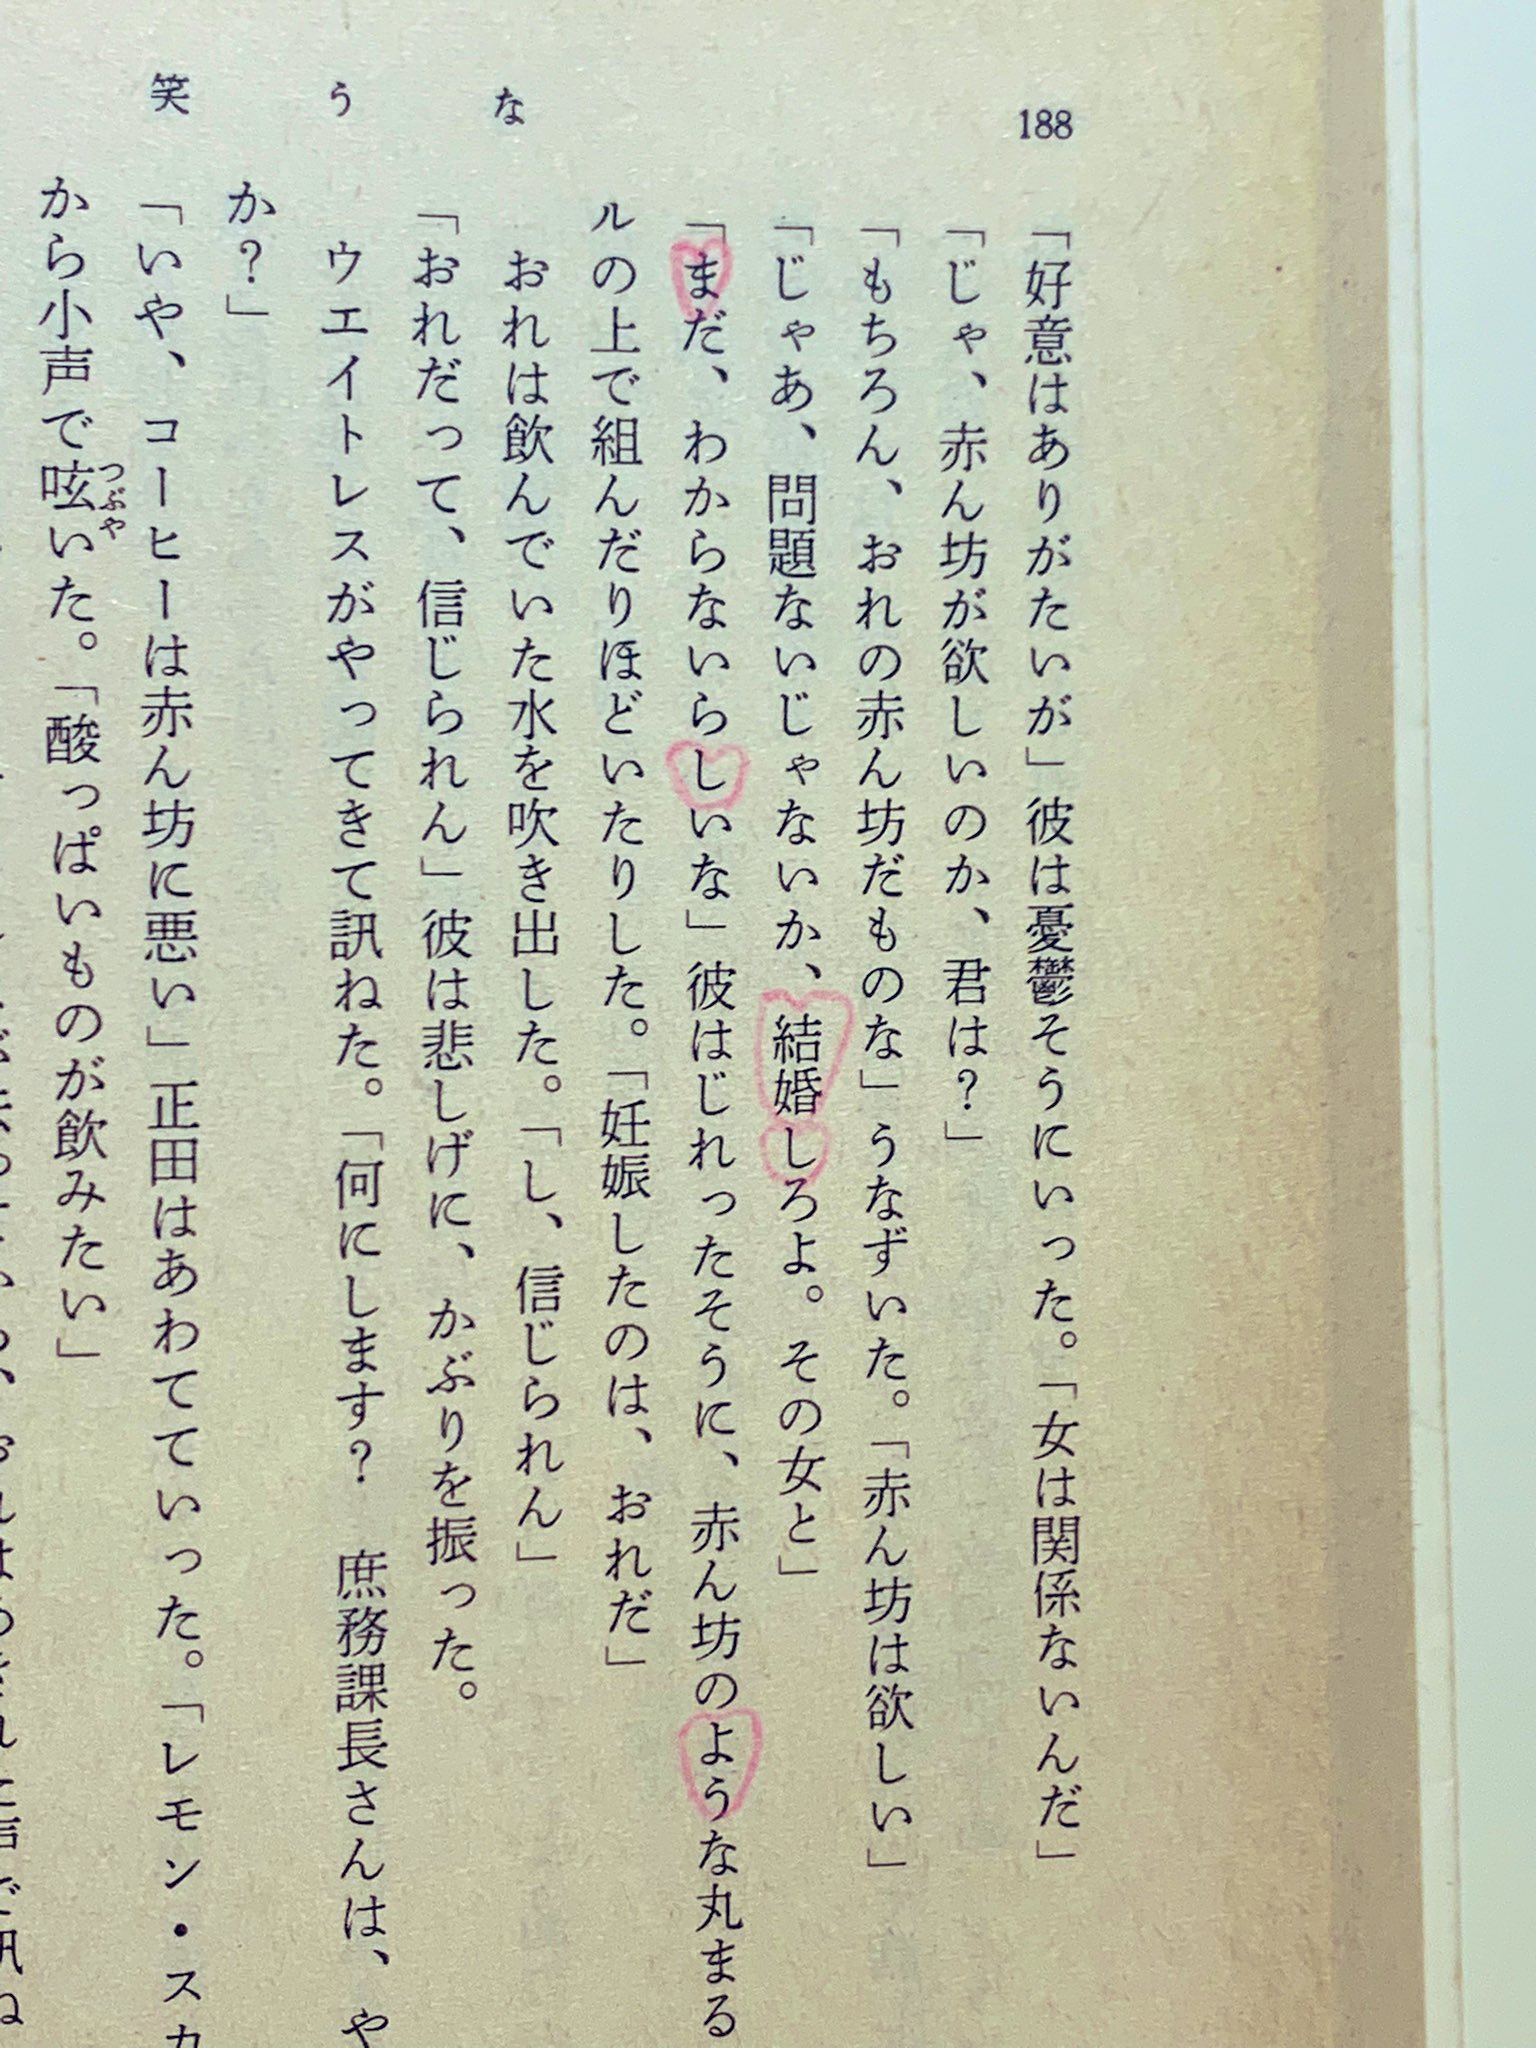 188
笑うな
「好意はありがたいが」彼は憂鬱そうにいった。「女は関係ないんだ」
「じゃ、赤ん坊が欲しいのか、君は？」
「もちろん、おれの赤ん坊だものな」うなずいた。「赤ん坊は欲しい」
「じゃあ、問題ないじゃないか、結婚しろよ。その女と」
「まだ、わからないらしいな」彼はじれったそうに、赤ん坊のような丸まる
ルの上で組んだりほどいたりした。「妊娠したのは、おれだ」
おれは飲んでいた水を吹き出した。「し、信じられん」
「おれだって、信じられん」彼は悲しげに、かぶりを振った。
ウエイトレスがやってきて訊ねた。「何にします？　庶務課長さんは、や
か？」
「いや、コーヒーは赤ん坊に悪い」正田はあわてていった。「レモン・スカ
から小声で呟いた。「酸っぱいものが飲みたい」
つぶや